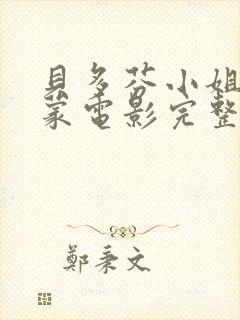 貝多芬小姐
蒙電影完整
鄭秉文